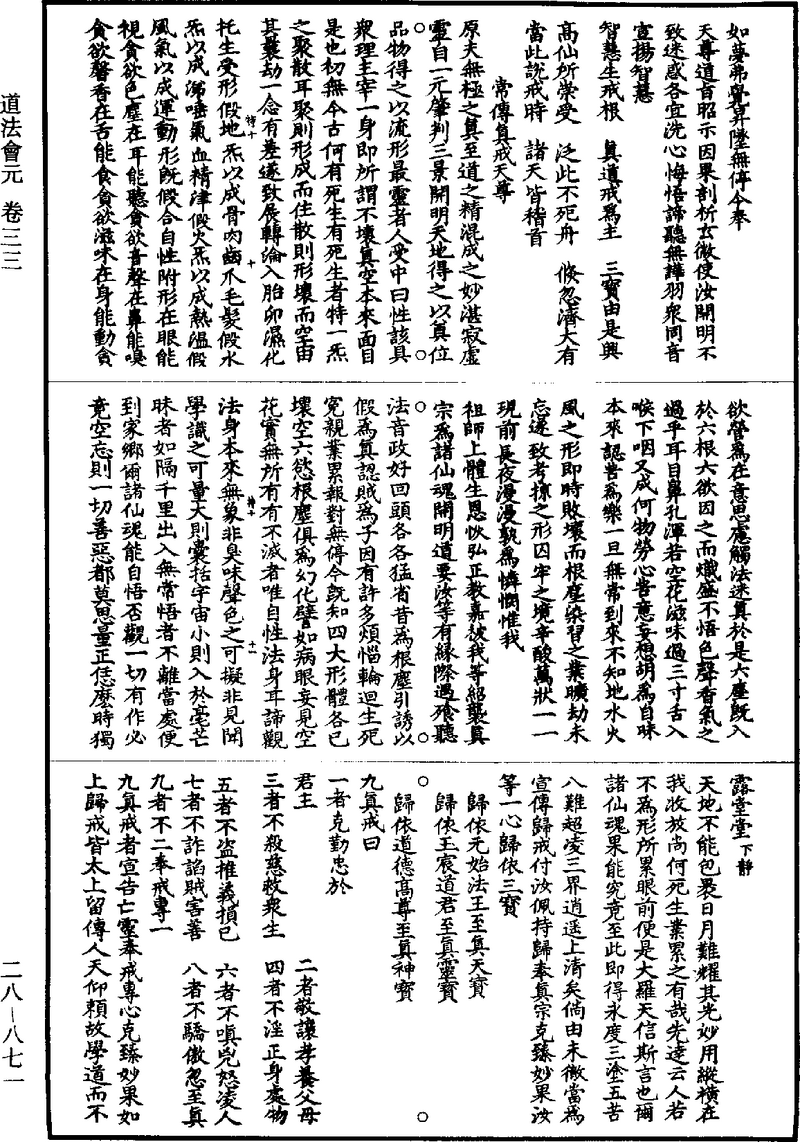 道法會元 卷三三
如夢弗覺昇墜無停今奉
天尊道旨昭示因果剖析玄微使汝開明不
致迷惑各宜洗心悔悟諦聽無譁羽衆同音
宣揚智慧
智慧生戒根 真道戒爲主 三寶由是興
高仙所崇受 泛此不死舟 倏忽濟大有
當此說戒時 諸天皆稽首
常傳真戒天尊
原夫無極之真至道之精混成之妙湛寂虛
靈自一元肇判三景開明天地得之以真位
品物得之以流形最靈者人受中曰性該具
衆理主宰一身即所謂不壞真空本來面目
是也初無今古何有死生有死生者特一炁
之聚散耳聚則形成而住散則形壞而空由
其曩劫一念有差遂致展轉淪入胎卵濕化
托生受形假地炁以成骨肉齒爪毛髮假水
炁以成涕唾氣血精津假火炁以成熱溫假
風氣以成運動形既假合自性附形在眼能
視貪欲色塵在耳能聽貪欲音聲在鼻能嗅
貪欲馨香在舌能食貪欲滋味在身能動貪
欲營爲在意思慮觸法迷真於是六塵既入
於六根六欲因之而熾盛不悟色聲香氣之
過乎耳目鼻孔渾若空花滋味過三寸舌入
喉下咽又成何物勞心苦意妄想胡爲自昧
本來認苦爲樂一旦無常到來不知地水火
風之形即時敗壞而根塵染習之業曠劫未
忘遂致考掠之形囚牢之境辛酸萬狀一一
現前長夜漫漫孰爲憐憫惟我
祖師上體生恩恢弘正教嘉彼我等紹襲真
宗爲諸仙魂開明道要汝等有緣際遇飱聽
法音政好回頭各各猛省昔爲根塵引誘以
假爲真認賊爲子因有許多煩惱輪迴生死
冤親業累報對無停今既知四大形體各已
壞空六慾根塵俱爲幻化譬如病眼妄見空
花實無所有有不滅者唯自性法身耳諦觀
法身本來無象非臭味聲色之可擬非見聞
學識之可量大則囊括宇宙小則入於毫芒
昧者如隔千里出入無常悟者不離當處便
到家鄉爾諸仙魂能自悟否觀一切有作必
竟空忘則一切善惡都莫思量正恁麼時獨
露堂堂下靜
天地不能包褁日月難耀其光妙用縱橫在
我收放尚何死生業累之有哉先達云人若
不爲形所累眼前便是大羅天信斯言也爾
諸仙魂果能究竟至此即得永度三塗五苦
八難超凌三界逍遥上清矣倘由未徹當爲
宣傳歸戒付汝佩持歸奉真宗克臻妙果汝
等一心歸依三寶
歸依元始法王至真天寶
歸依玉宸道君至真靈寶
歸依道德高尊至真神寶
九真戒曰
一者克勤忠於
君王 二者敬讓孝養父母
三者不殺慈救衆生 四者不淫正身處物
五者不盗推義損己 六者不嗔兇怒凌人
七者不詐諂賊害善 八者不驕傲忽至真
九者不二奉戒專一
九真戒者宣告亡靈奉戒專心克臻妙果如
上歸戒皆太上留傳人天仰賴故學道而不
二八—八七一